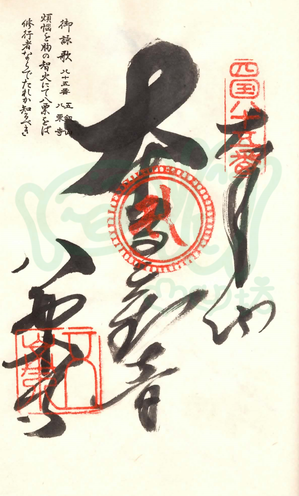 四国八十五番
奉納
大聖観音
八栗寺
御詠歌 八十五番 五剣山 八栗寺
煩悩を胸の智火にて八栗をば
修行者ならでたれか知るべき